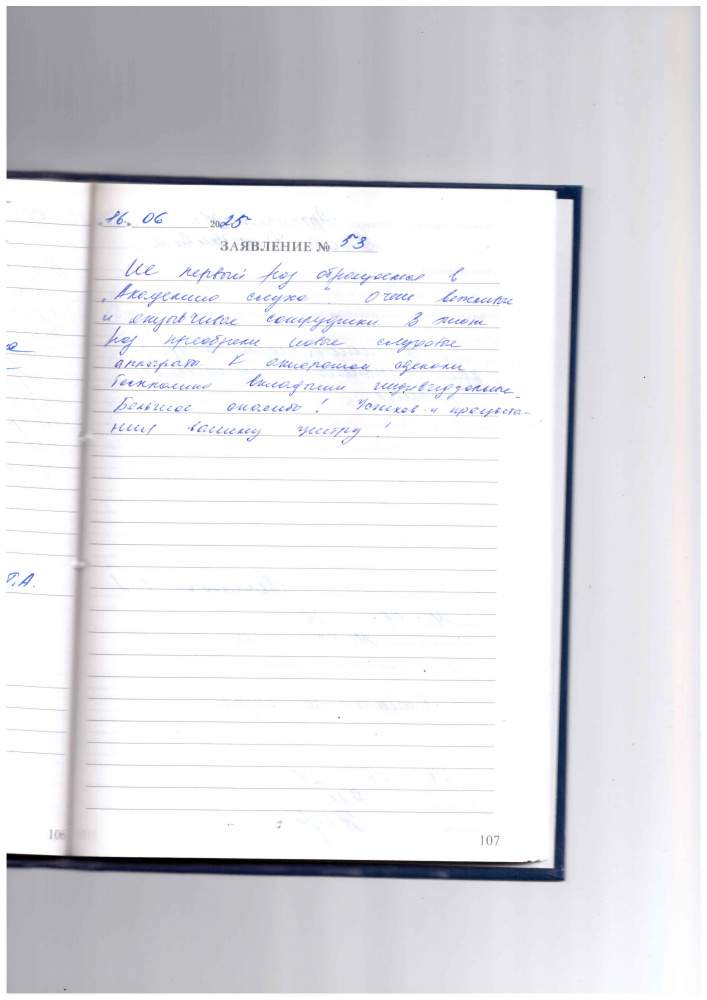 „16„ 06 2025
ЗАЯВЛЕНИЕ № 53
Не первый раз обращаемся в
„Академию слуха". Очень вежливые
и отзывчивые сотрудники. В этот
раз приобрели новые слуховые
аппараты к
бесплатно вкладыши индивидуальные.
Большое спасибо! Успехов и процвета-
ния вашему центру!
Т.А.
106
107